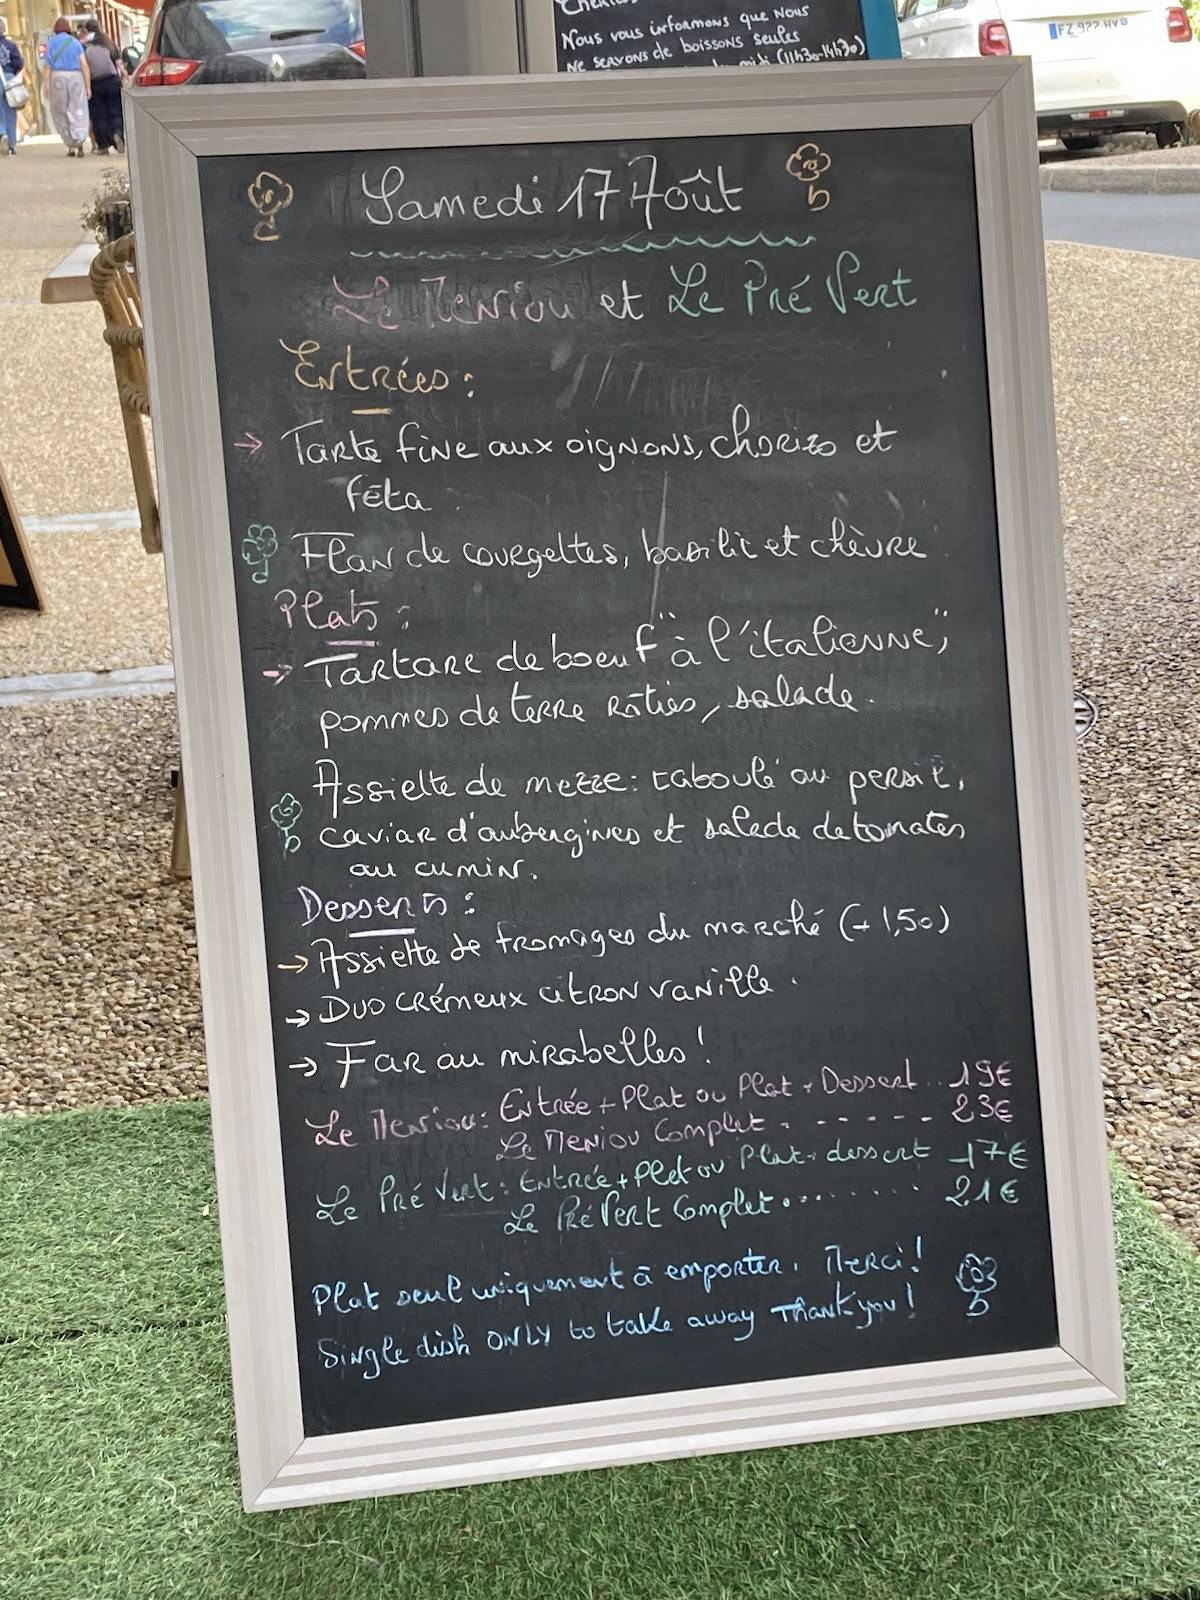 Nous vous informons que nous
ne servons de boissons seules
midi (11h30-14h30)
FZ 922 HV
Samedi 17 Août
Le Meniou et Le Pré Vert
Entrées :
→ Tarte fine aux oignons, chorizo et
féta
Flan de courgettes, basilic et chèvre
Plats :
→ Tartare de boeuf "à l'italienne",
pommes de terre rôties, salade.
Assiette de mezze : taboulé au persil,
caviar d'aubergines et salade de tomates
au cumin.
Desserts :
→ Assiette de fromages du marché (+1,50)
→ Duo crémeux citron vanille.
→ Far au mirabelles !
Le Meniou : Entrée + Plat ou Plat + Dessert .. 19€
Le Meniou Complet . - - - - - - 23€
Le Pré Vert : Entrée + Plat ou Plat + dessert 17€
Le Pré Vert Complet ......... 21€
Plat seul uniquement à emporter. Merci !
Single dish ONLY to take away Thank you !